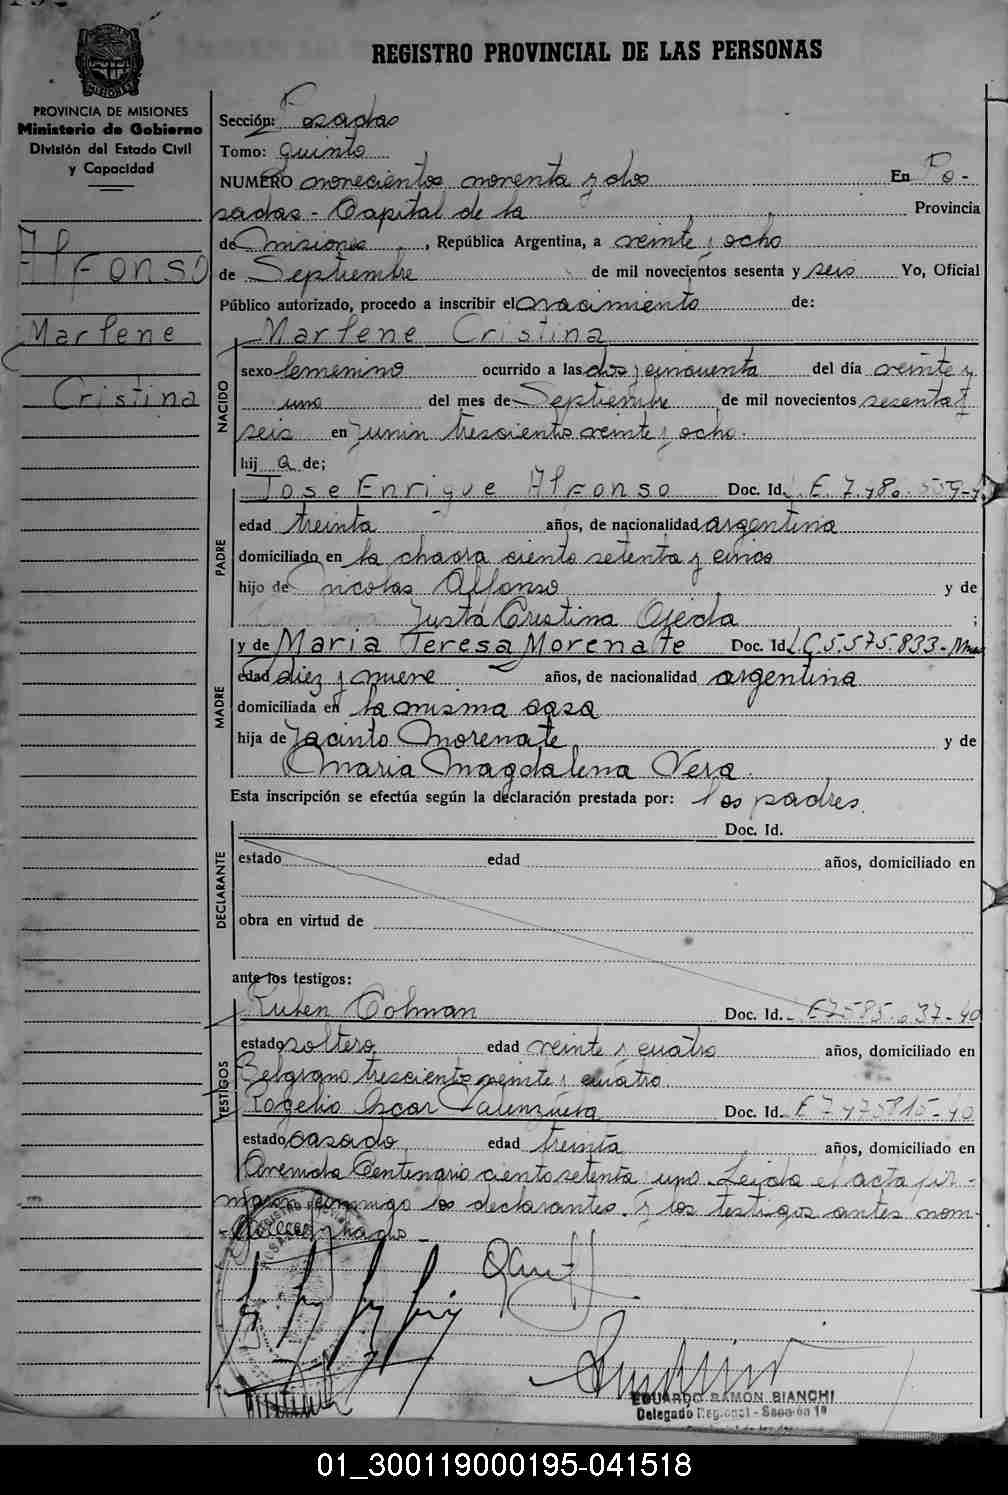 REGISTRO PROVINCIAL DE LAS PERSONAS
PROVINCIA DE MISIONES
Ministerio de Gobierno
División del Estado Civil
y Capacidad
Alfonso
Marlene
Cristina
Sección: Posadas
Tomo: quinto
NUMERO novecientos noventa y dos En Po-
sadas - Capital de la Provincia
de Misiones, República Argentina, a veinte y ocho
de Septiembre de mil novecientos sesenta y seis Yo, Oficial
Público autorizado, procedo a inscribir el nacimiento de:
Marlene Cristina
NACIDO
sexo femenino ocurrido a las dos y cincuenta del día veinte y
uno del mes de Septiembre de mil novecientos sesenta y
seis en Junin trescientos veinte y ocho.
hij a de;
PADRE
Jose Enrique Alfonso Doc. Id. E. 7.480.
edad treinta años, de nacionalidad argentina
domiciliado en la chacra ciento setenta y cinco
hijo de Nicolas Alfonso y de
Justa Cristina Ojeda ;
MADRE
y de Maria Teresa Morenate Doc. Id. L.C 5.575.833-
edad diez y nueve años, de nacionalidad argentina
domiciliada en la misma casa
hija de Jacinto Morenate y de
Maria Magdalena Vera.
Esta inscripción se efectúa según la declaración prestada por: los padres.
DECLARANTE
Doc. Id.
estado edad años, domiciliado en
obra en virtud de
ante los testigos:
TESTIGOS
Ruben Colman Doc. Id. E7585.037-40
estado soltero edad veinte y cuatro años, domiciliado en
Belgrano trescientos veinte y cuatro.
Rogelio Oscar Valenzuela Doc. Id. E 7.475815-40
estado casado edad treinta años, domiciliado en
Avenida Centenario ciento setenta y uno. Leida el acta fir-
maron conmigo los declarantes y los testigos antes nom-
EDUARDO RAMON BIANCHI
Delegado Regional - Sección 1ª
01_300119000195-041518